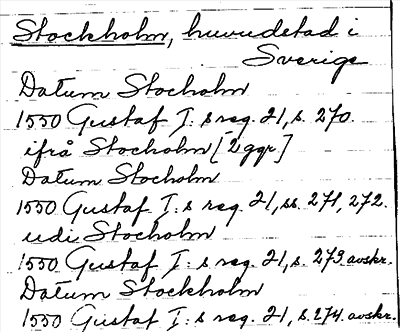 Stockholm, huvudstad i
Sverige
Datum Stocholm
1550 Gustaf I:s reg. 21, s. 270.
ifrå Stocholm [2 ggr]
Datum Stocholm
1550 Gustaf I:s reg. 21, ss. 271, 272.
udi Stocholm
1550 Gustaf I:s reg. 21, s. 273 avskr.
Datum Stockholm
1550 Gustaf I:s reg. 21, s. 274. avskr.